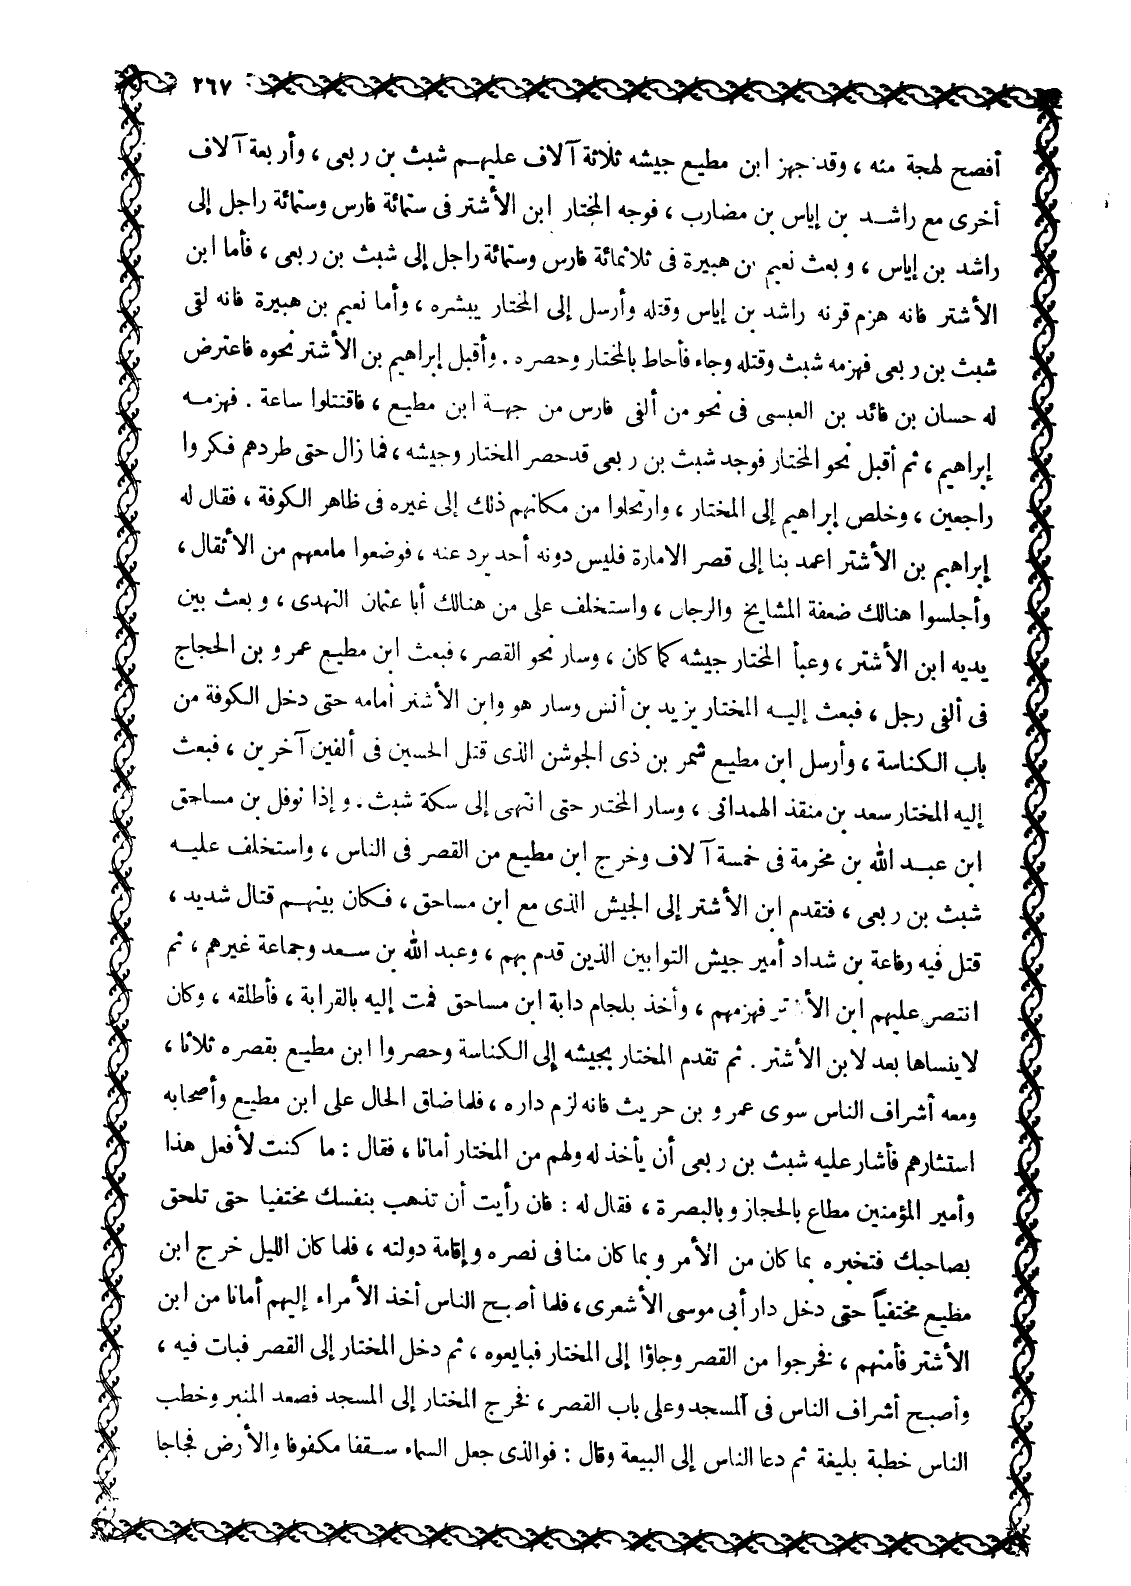 ٢٦٧
أفصح لهجة منه ، وقد جهز ابن مطيع جيشه ثلاثة آلاف عليهم شبث بن ربعى ، وأربعة آلاف
أخرى مع راشد بن إياس بن مضارب ، فوجه المختار ابن الأشتر فى ستمائة فارس وستمائة راجل إلى
راشد بن إياس ، وبعث نعيم بن هبيرة فى ثلاثمائة فارس وستمائة راجل إلى شبث بن ربعى ، فأما ابن
الأشتر فانه هزم قرنه راشد بن إياس وقتله وأرسل إلى المختار يبشره ، وأما نعيم بن هبيرة فانه لقى
شبث بن ربعى فهزمه شبث وقتله وجاء فأحاط بالمختار وحصره . وأقبل إبراهيم بن الأشتر نحوه فاعترض
له حسان بن فائد بن العبسى فى نحو من ألفى فارس من جهة ابن مطيع ، فاقتتلوا ساعة . فهزمه
إبراهيم ، ثم أقبل نحو المختار فوجد شبث بن ربعى قد حصر المختار وجيشه ، فما زال حتى طردهم فكروا
راجعين ، وخلص إبراهيم إلى المختار ، وارتحلوا من مكانهم ذلك إلى غيره فى ظاهر الكوفة ، فقال له
إبراهيم بن الأشتر اعمد بنا إلى قصر الامارة فليس دونه أحد يرد عنه ، فوضعوا مامعهم من الأثقال ،
وأجلسوا هنالك ضعفة المشايخ والرجال ، واستخلف على من هنالك أبا عثمان النهدى ، وبعث بين
يديه ابن الأشتر ، وعبأ المختار جيشه كما كان ، وسار نحو القصر ، فبعث ابن مطيع عمرو بن الحجاج
فى ألفى رجل ، فبعث إليه المختار يزيد بن أنس وسار هو وابن الأشتر أمامه حتى دخل الكوفة من
باب الكناسة ، وأرسل ابن مطيع شمر بن ذى الجوشن الذى قتل الحسين فى ألفين آخرين ، فبعث
إليه المختار سعد بن منقذ الهمدانى ، وسار المختار حتى انتهى إلى سكة شبث . وإذا نوفل بن مساحق
ابن عبد الله بن مخرمة فى خمسة آلاف وخرج ابن مطيع من القصر فى الناس ، واستخلف عليه
شبث بن ربعى ، فتقدم ابن الأشتر إلى الجيش الذى مع ابن مساحق ، فكان بينهم قتال شديد ،
قتل فيه رفاعة بن شداد أمير جيش التوابين الذين قدم بهم ، وعبد الله بن سعد وجماعة غيرهم ، ثم
انتصر عليهم ابن الأشتر فهزمهم ، وأخذ بلجام دابة ابن مساحق فمت إليه بالقرابة ، فأطلقه ، وكان
لاينساها بعد لابن الأشتر . ثم تقدم المختار بجيشه إلى الكناسة وحصروا ابن مطيع بقصره ثلاثا ،
ومعه أشراف الناس سوى عمرو بن حريث فانه لزم داره ، فلما ضاق الحال على ابن مطيع وأصحابه
استشارهم فأشار عليه شبث بن ربعى أن يأخذ له ولهم من المختار أمانا ، فقال : ما كنت لأفعل هذا
وأمير المؤمنين مطاع بالحجاز وبالبصرة ، فقال له : فان رأيت أن تذهب بنفسك مختفيا حتى تلحق
بصاحبك فتخبره بما كان من الأمر وبما كان منا فى نصره وإقامة دولته ، فلما كان الليل خرج ابن
مطيع مختفياً حتى دخل دار أبى موسى الأشعرى ، فلما أصبح الناس أخذ الأمراء إليهم أمانا من ابن
الأشتر فأمنهم ، فخرجوا من القصر وجاؤا إلى المختار فبايعوه ، ثم دخل المختار إلى القصر فبات فيه ،
وأصبح أشراف الناس فى المسجد وعلى باب القصر ، فخرج المختار إلى المسجد فصعد المنبر وخطب
الناس خطبة بليغة ثم دعا الناس إلى البيعة وقال : فوالذى جعل السماء سقفا مكفوفا والأرض فجاجا